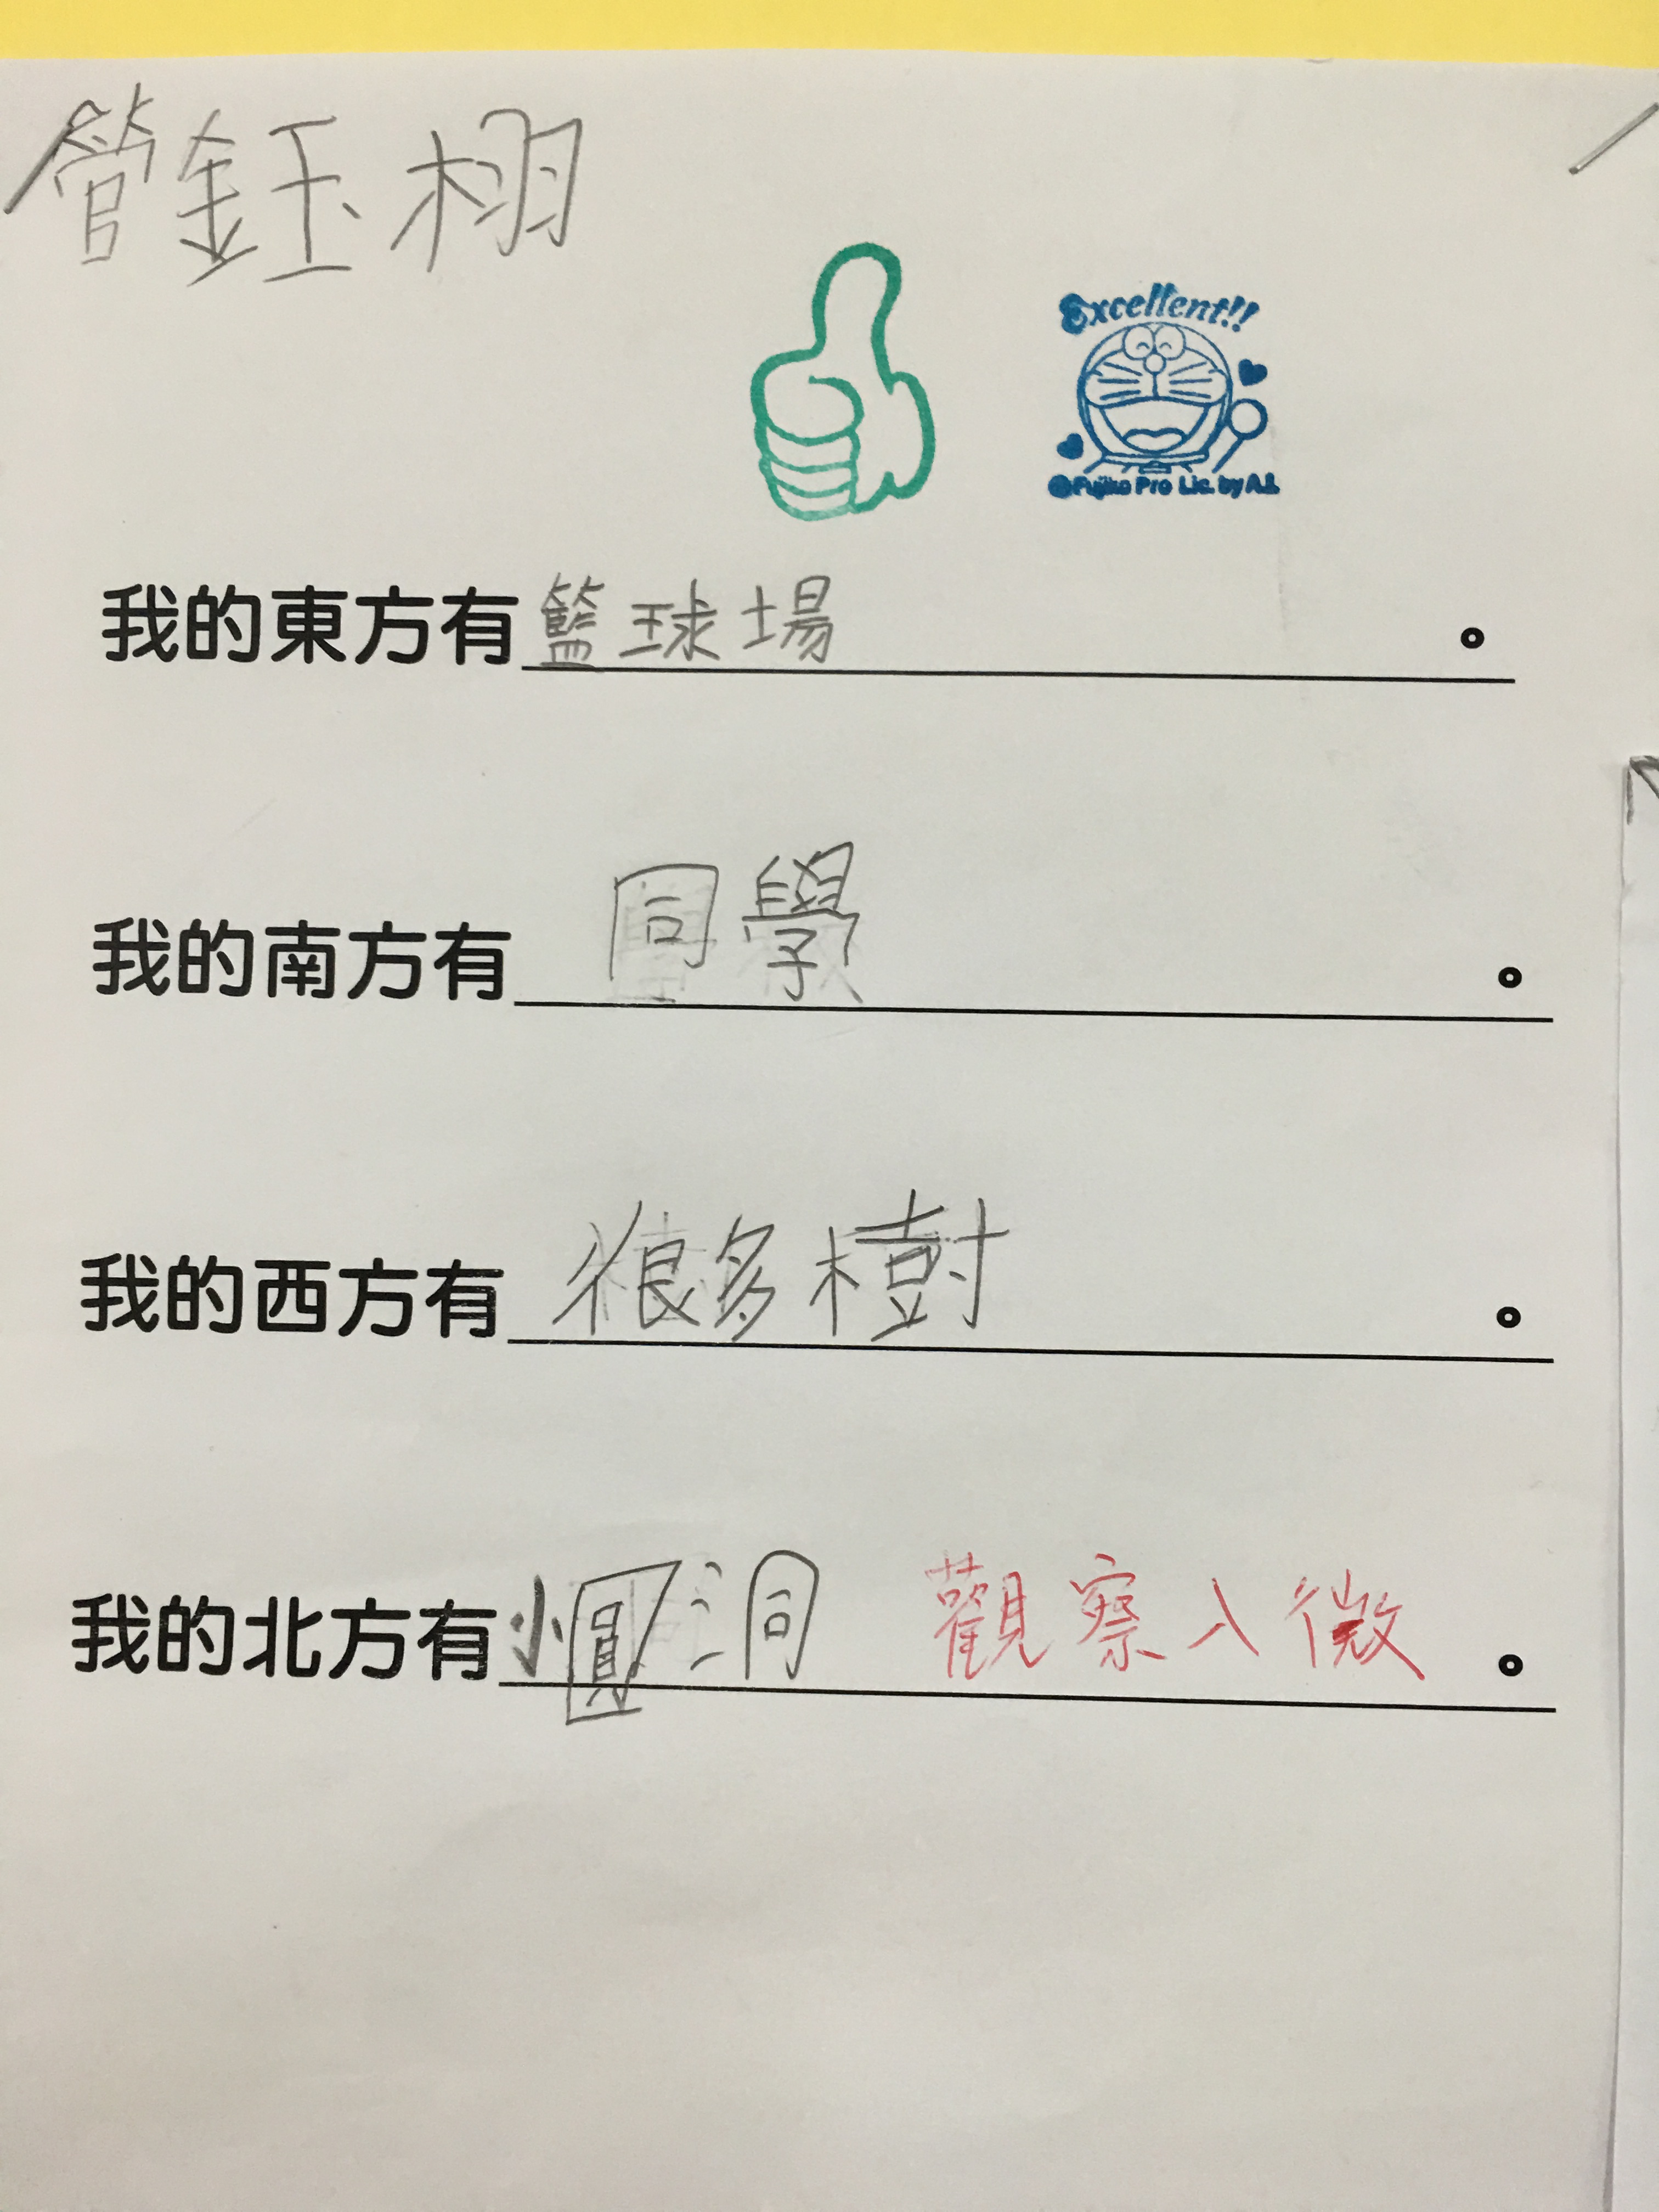 管鈺栩
Excellent!!
©Fujiko Pro Lic. by A.I.
我的東方有籃球場。
我的南方有同學。
我的西方有很多樹。
我的北方有小圓洞 觀察入微。